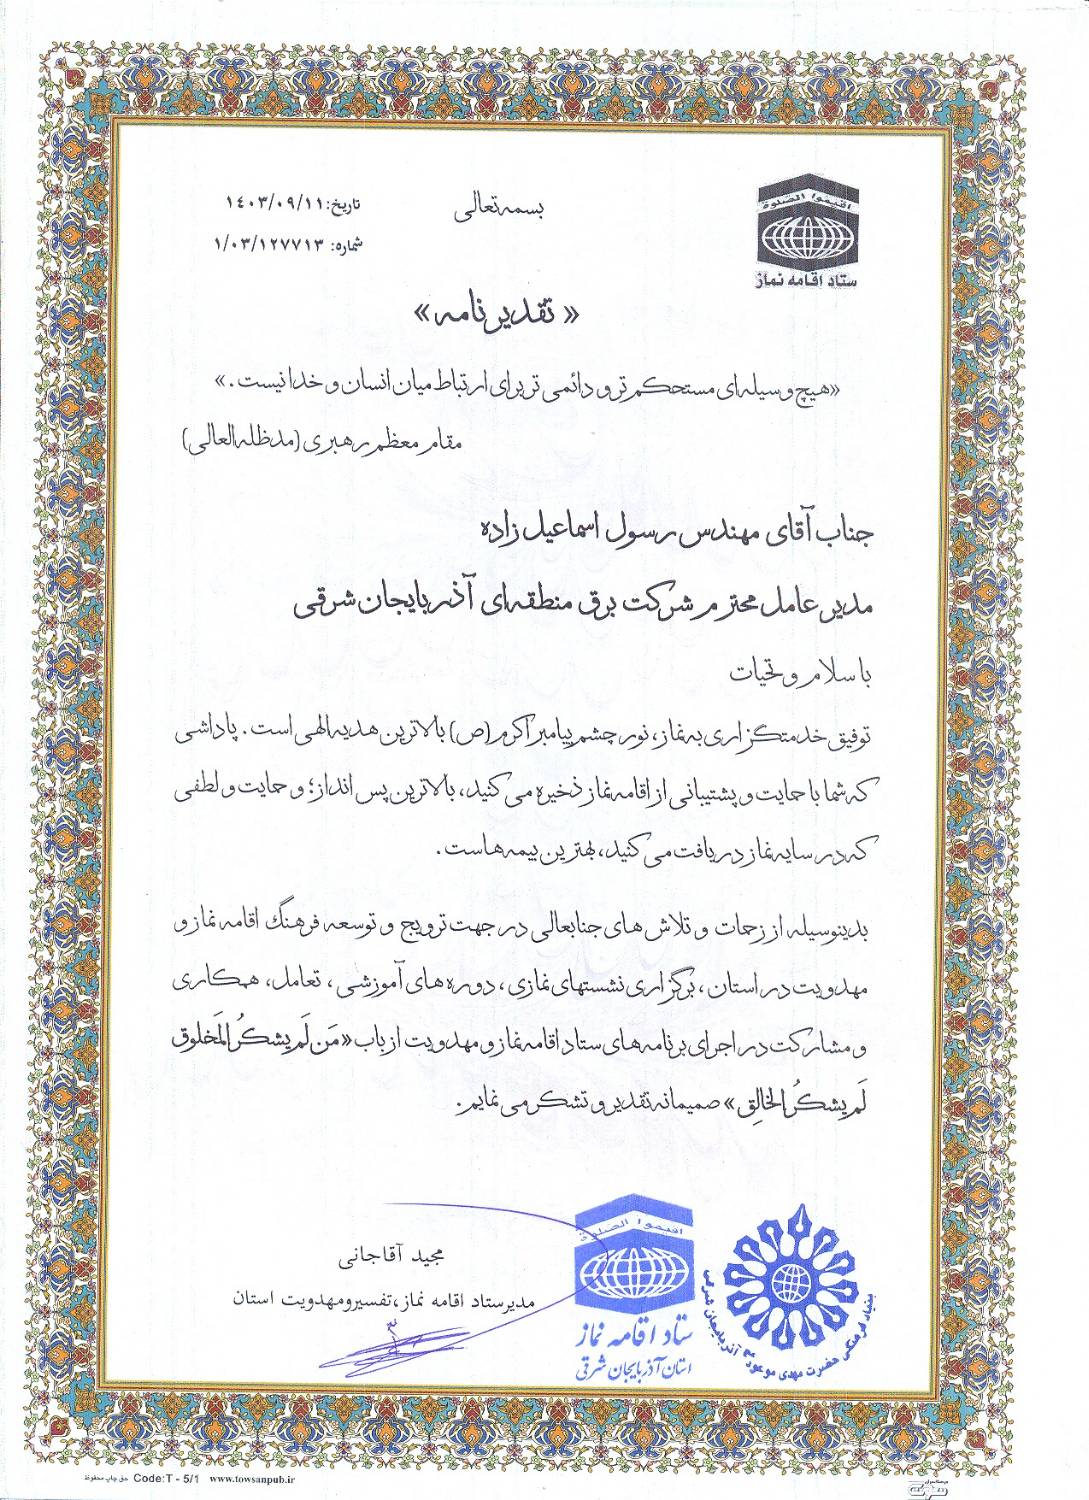 بسمه تعالی
تاریخ: ۱۴۰۳/۰۹/۱۱
شماره: ۱/۰۳/۱۲۷۷۱۳
اقیموا الصلوة
ستاد اقامه نماز
« تقدیرنامه »
«هیچ وسیله‌ای مستحکم تر و دائمی تر برای ارتباط میان انسان و خدا نیست .»
مقام معظم رهبری (مدظله العالی)
جناب آقای مهندس رسول اسماعیل زاده
مدیر عامل محترم شرکت برق منطقه‌ای آذربایجان شرقی
با سلام و تحیات
توفیق خدمتگزاری به نماز، نور چشم پیامبر اکرم (ص) بالاترین هدیه الهی است . پاداشی
که شما با حمایت و پشتیبانی از اقامه نماز ذخیره می کنید، بالاترین پس انداز؛ و حمایت و لطفی
که در سایه نماز دریافت می کنید، بهترین بیمه هاست .
بدینوسیله از زحمات و تلاش های جنابعالی در جهت ترویج و توسعه فرهنگ اقامه نماز و
مهدویت در استان ، برگزاری نشستهای نمازی ، دوره های آموزشی ، تعامل ، همکاری
و مشارکت در اجرای برنامه های ستاد اقامه نماز و مهدویت از باب «مَن لَم یشکُر المَخلوق
لَم یشکُر الخالِق» صمیمانه تقدیر و تشکر می نمایم.
مجید آقاجانی
مدیر ستاد اقامه نماز، تفسیر و مهدویت استان
اقیموا الصلوة
ستاد اقامه نماز
استان آذربایجان شرقی
بنیاد فرهنگی حضرت مهدی موعود عج آذربایجان شرقی
حق چاپ محفوظ Code:T - 5/1 www.towsanpub.ir